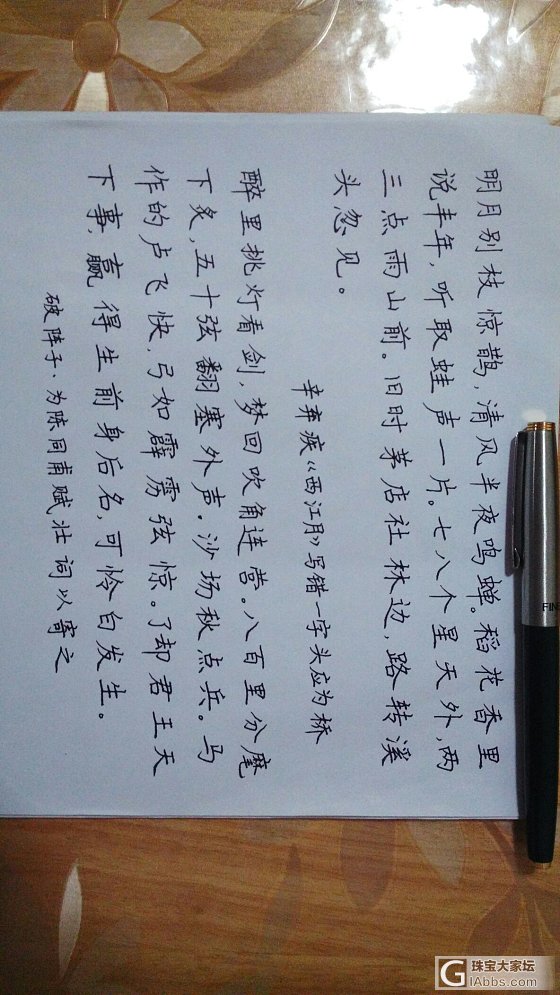 明月别枝惊鹊,清风半夜鸣蝉。稻花香里
说丰年,听取蛙声一片。七八个星天外,两
三点雨山前。旧时茅店社林边,路转溪
头忽见。
辛弃疾《西江月》写错一字头应为桥
醉里挑灯看剑,梦回吹角连营。八百里分麾
下炙,五十弦翻塞外声。沙场秋点兵。马
作的卢飞快,弓如霹雳弦惊。了却君王天
下事,赢得生前身后名,可怜白发生。
破阵子·为陈同甫赋壮词以寄之
FINE
珠宝大家坛
GIAbbs.com